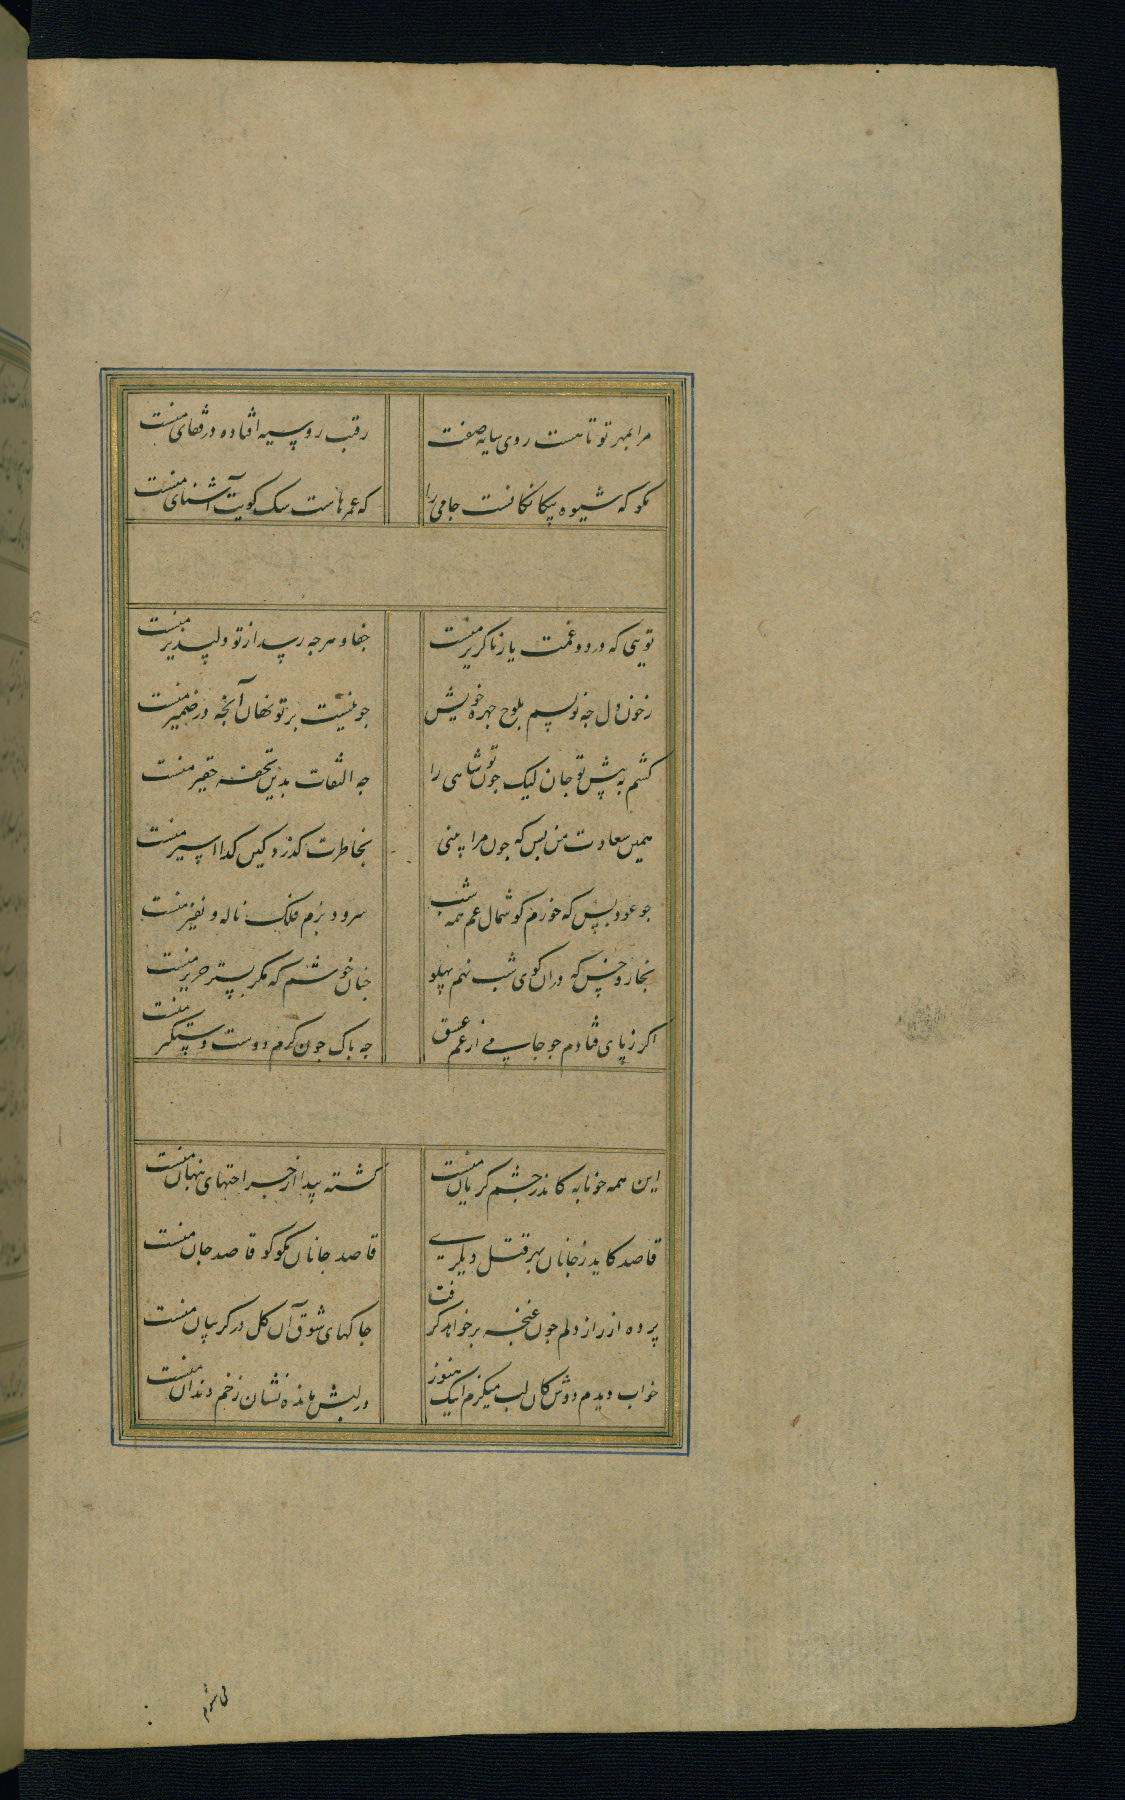 مرا بمهر تو تا هست روی سایه صفت رقیب روسیه افتاده در قفای منست
مکو که شیوه بیکانکانست جامی را که عمرهاست سک کویت آشنای منست
تویی که درد و غمت یار ناکزیر منست جفا و هرجه رسد از تو دلپذیر منست
زخون دل جه نویسم بلوح جهره خویش جو نیست بر تو نهان آنجه در ضمیر منست
کشم به پیش تو جان لیک جون تو شاهی را جه التفات بدین تحفه حقیر منست
همین سعادت من بس که جون مرا بینی بخاطرت کذرد کین کدا اسیر منست
جو عود بس که خورم کوشمال غم همه شب سرود بزم فلک ناله و نفیر منست
بخار و خس که دران کوی شب نهم پهلو جنان خوشم که مکر بستر حریر منست
اکر ز پای فتادم جو جامی از غم عشق جه باک جون کرم دوست دستکیر منست
این همه خونابه کاندر جشم کریان منست کشته پیدا از جراحتهای پنهان منست
قاصد کاید ز جانان بهر قتل دیکری قاصد جانان مکو کو قاصد جان منست
پرده از راز دلم جون غنجه بر خواهد کرفت جاکهای شوق آن کل در کریبان منست
خواب دیدم دوش کان لب میکزم اینک هنوز در لبش مانده نشان زخم دندان منست